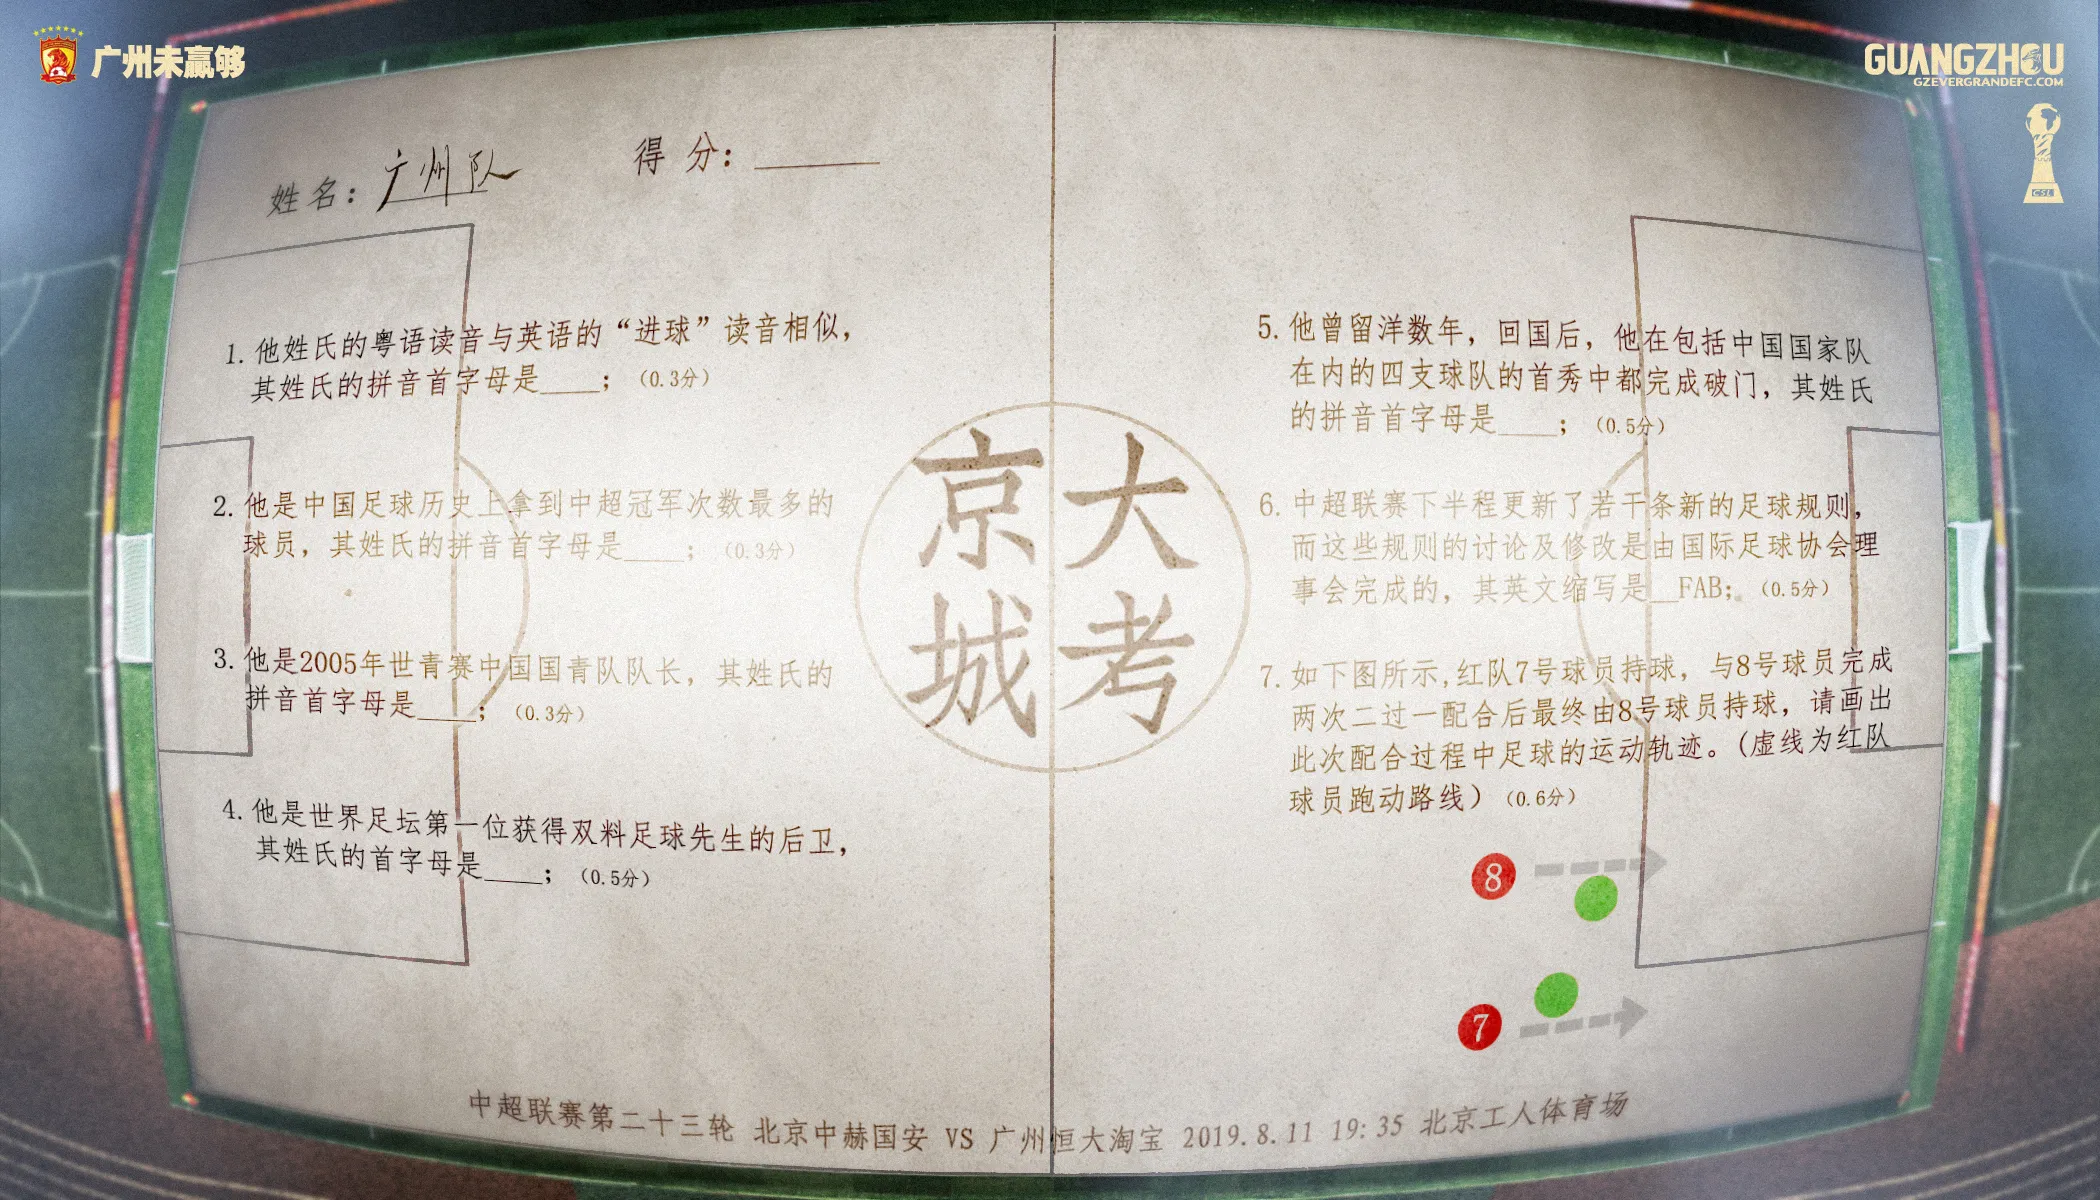 广州未赢够
GUANGZHOU
GZEVERGRANDEFC.COM
CSL
姓名：广州队
得 分：______
1. 他姓氏的粤语读音与英语的“进球”读音相似，
其姓氏的拼音首字母是____；（0.3分）
2. 他是中国足球历史上拿到中超冠军次数最多的
球员，其姓氏的拼音首字母是____；（0.3分）
3. 他是2005年世青赛中国国青队队长，其姓氏的
拼音首字母是____；（0.3分）
4. 他是世界足坛第一位获得双料足球先生的后卫，
其姓氏的首字母是____；（0.5分）
京大
城考
5. 他曾留洋数年，回国后，他在包括中国国家队
在内的四支球队的首秀中都完成破门，其姓氏
的拼音首字母是____；（0.5分）
6. 中超联赛下半程更新了若干条新的足球规则，
而这些规则的讨论及修改是由国际足球协会理
事会完成的，其英文缩写是__FAB；（0.5分）
7. 如下图所示,红队7号球员持球，与8号球员完成
两次二过一配合后最终由8号球员持球，请画出
此次配合过程中足球的运动轨迹。(虚线为红队
球员跑动路线）（0.6分）
8
7
中超联赛第二十三轮 北京中赫国安 VS 广州恒大淘宝 2019.8.11 19:35 北京工人体育场